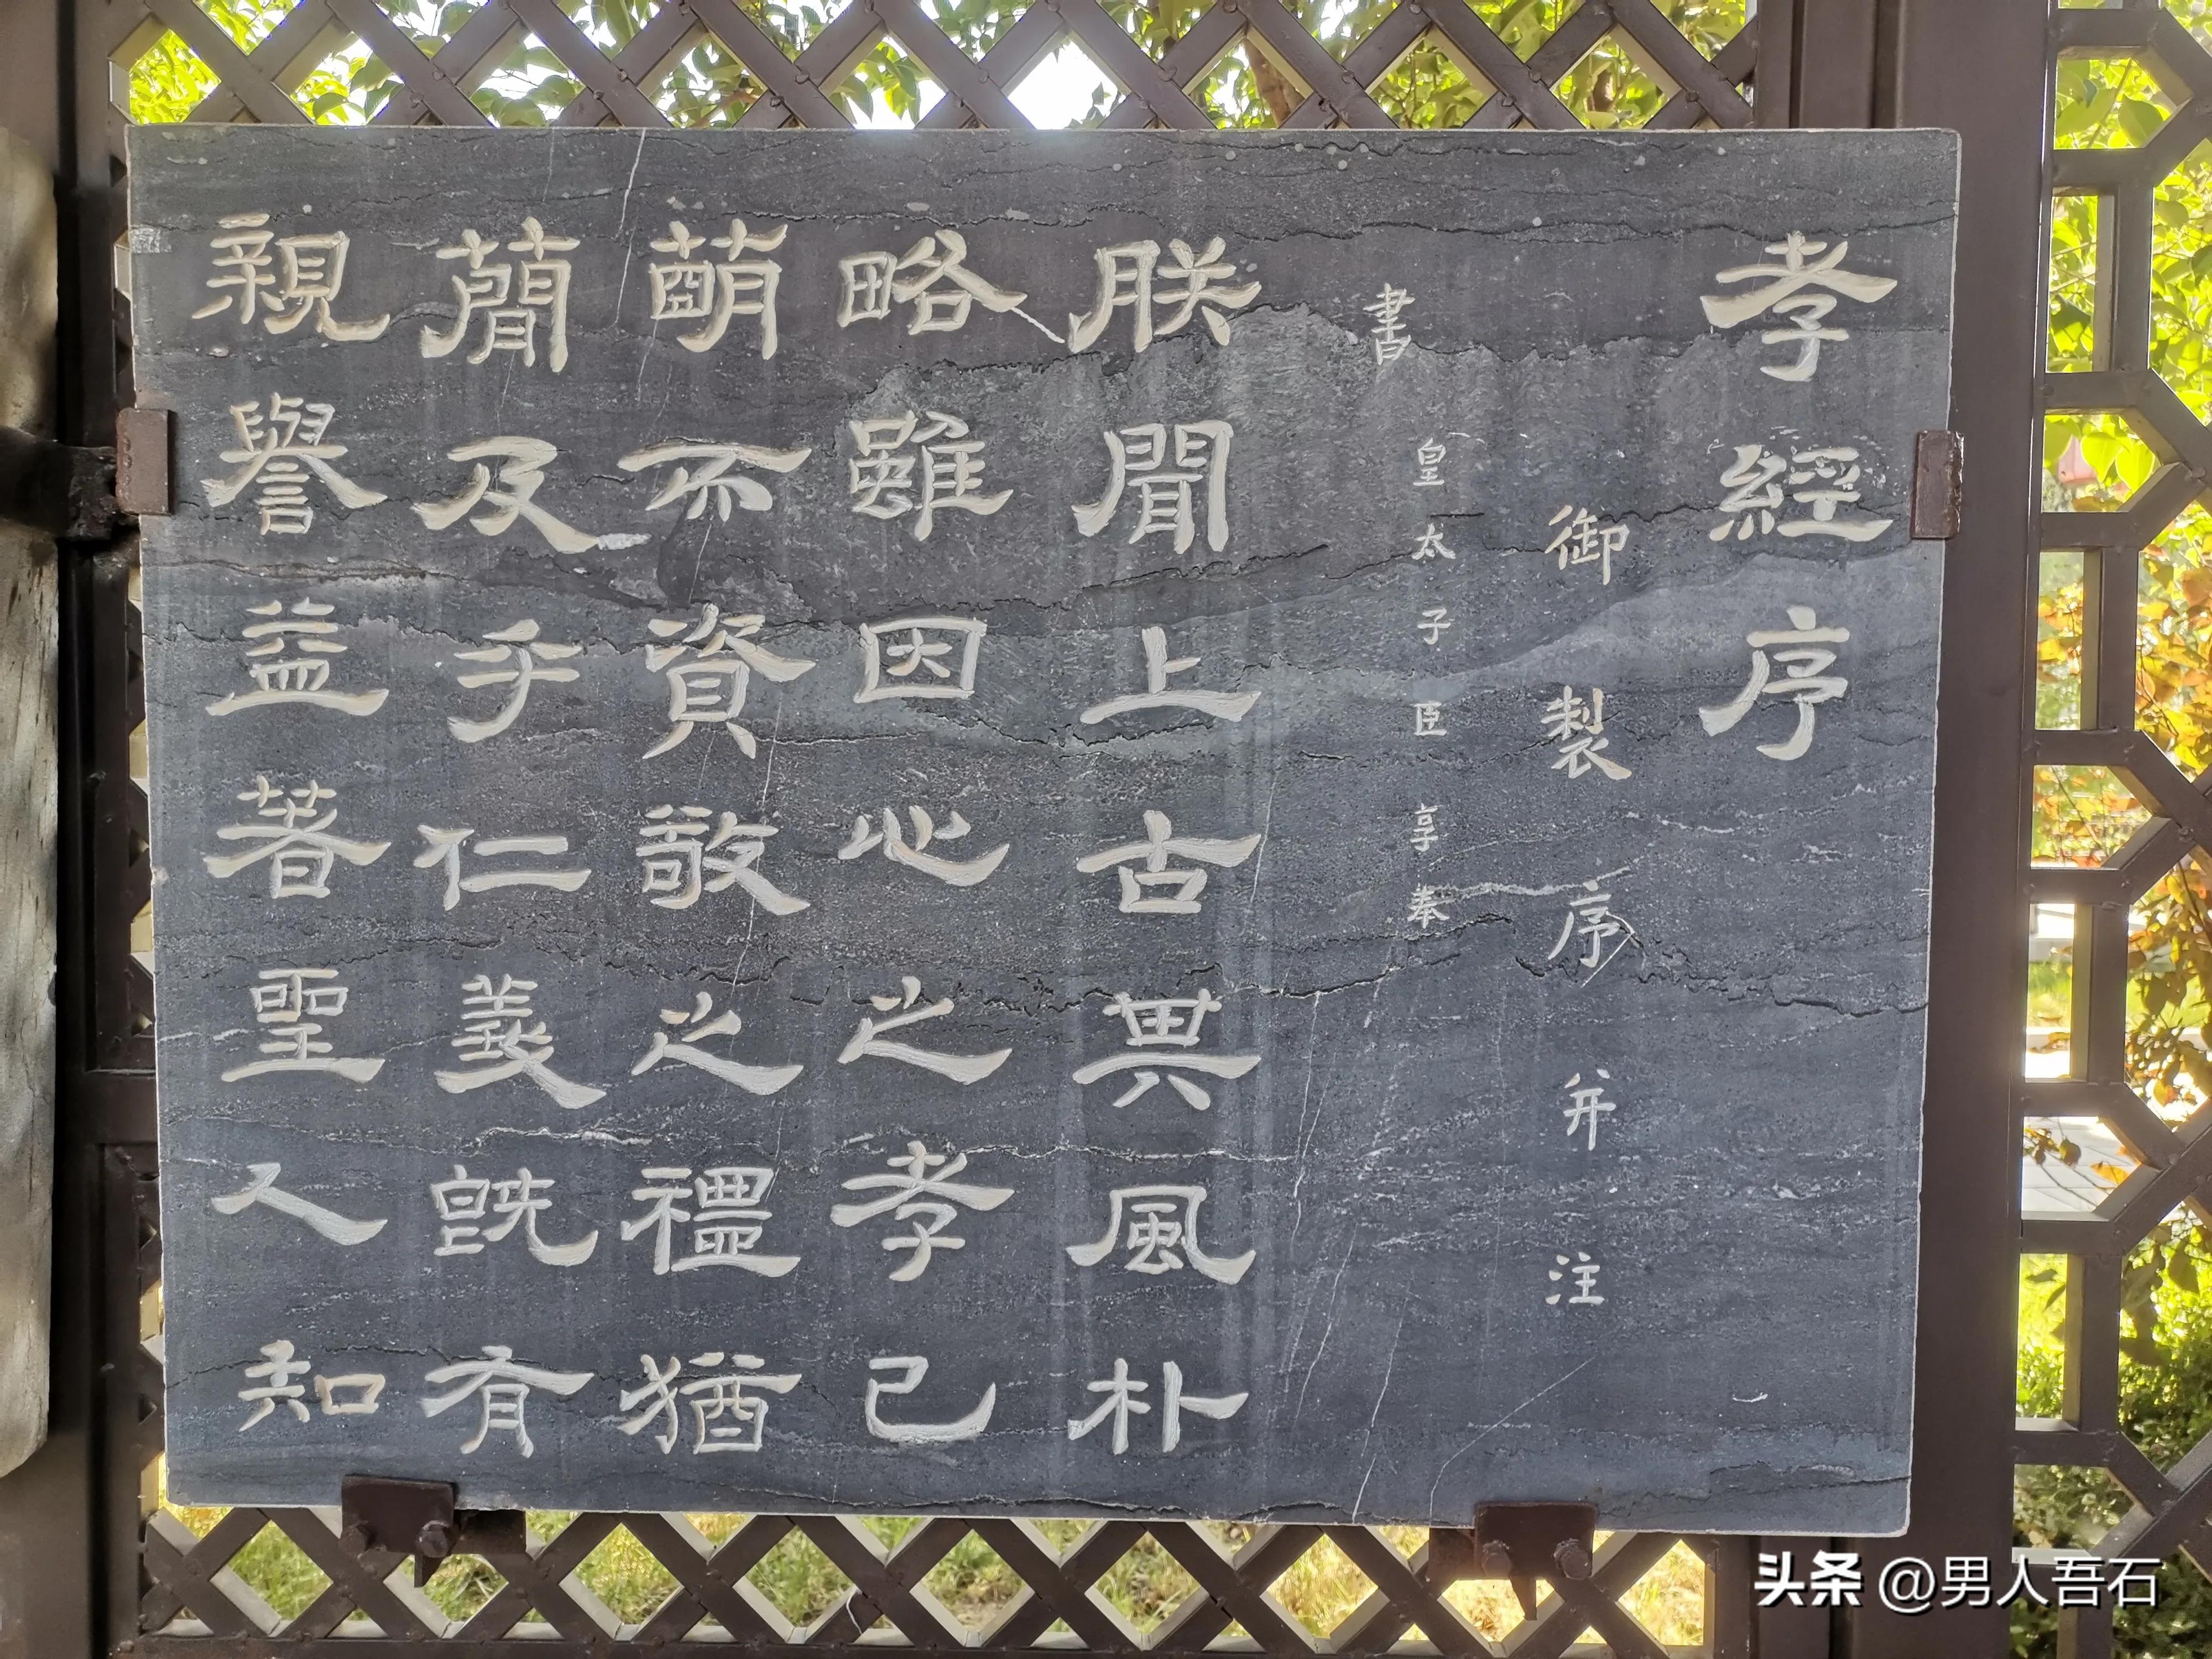 孝經序
御製序并注
皇太子臣享奉
書
朕聞上古其風朴
略雖因心之孝已
萌不資敬之禮猶
簡及乎仁義既有
親譽益著聖人知
头条 @男人吾石